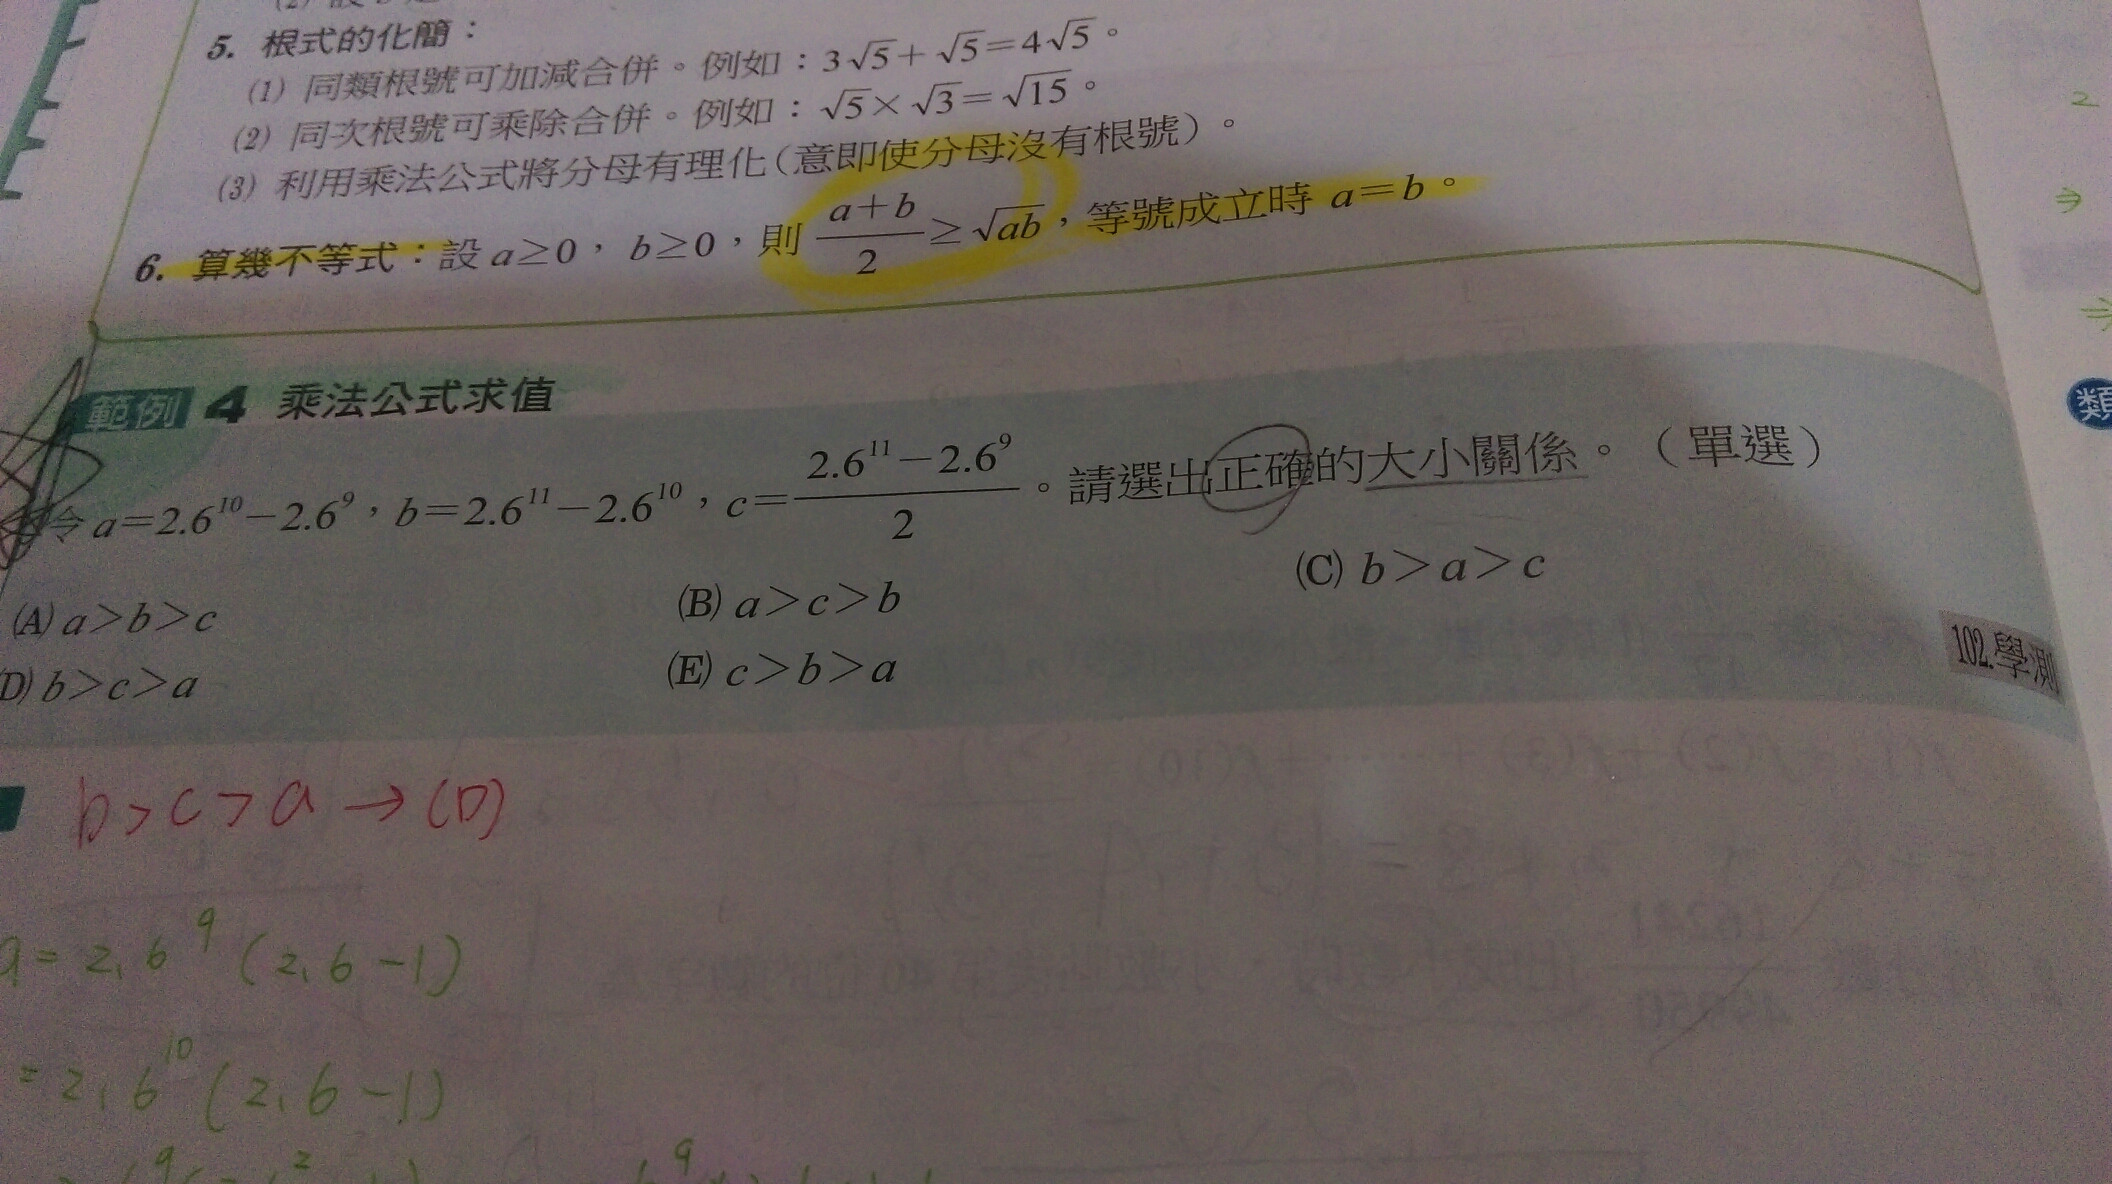 5. 根式的化簡：
(1) 同類根號可加減合併。例如：3√5+√5=4√5。
(2) 同次根號可乘除合併。例如：√5×√3=√15。
(3) 利用乘法公式將分母有理化(意即使分母沒有根號)。
6. 算幾不等式：設 a≥0， b≥0，則 (a+b)/2 ≥ √ab，等號成立時 a=b。
範例 4 乘法公式求值
令 a=2.6¹⁰−2.6⁹，b=2.6¹¹−2.6¹⁰，c=(2.6¹¹−2.6⁹)/2。請選出正確的大小關係。（單選）
(A) a>b>c (B) a>c>b (C) b>a>c
(D) b>c>a (E) c>b>a
102.學測
b>c>a→(D)
a=2.6⁹(2.6−1)
=2.6¹⁰(2.6−1)
2
⇒
⇒
類